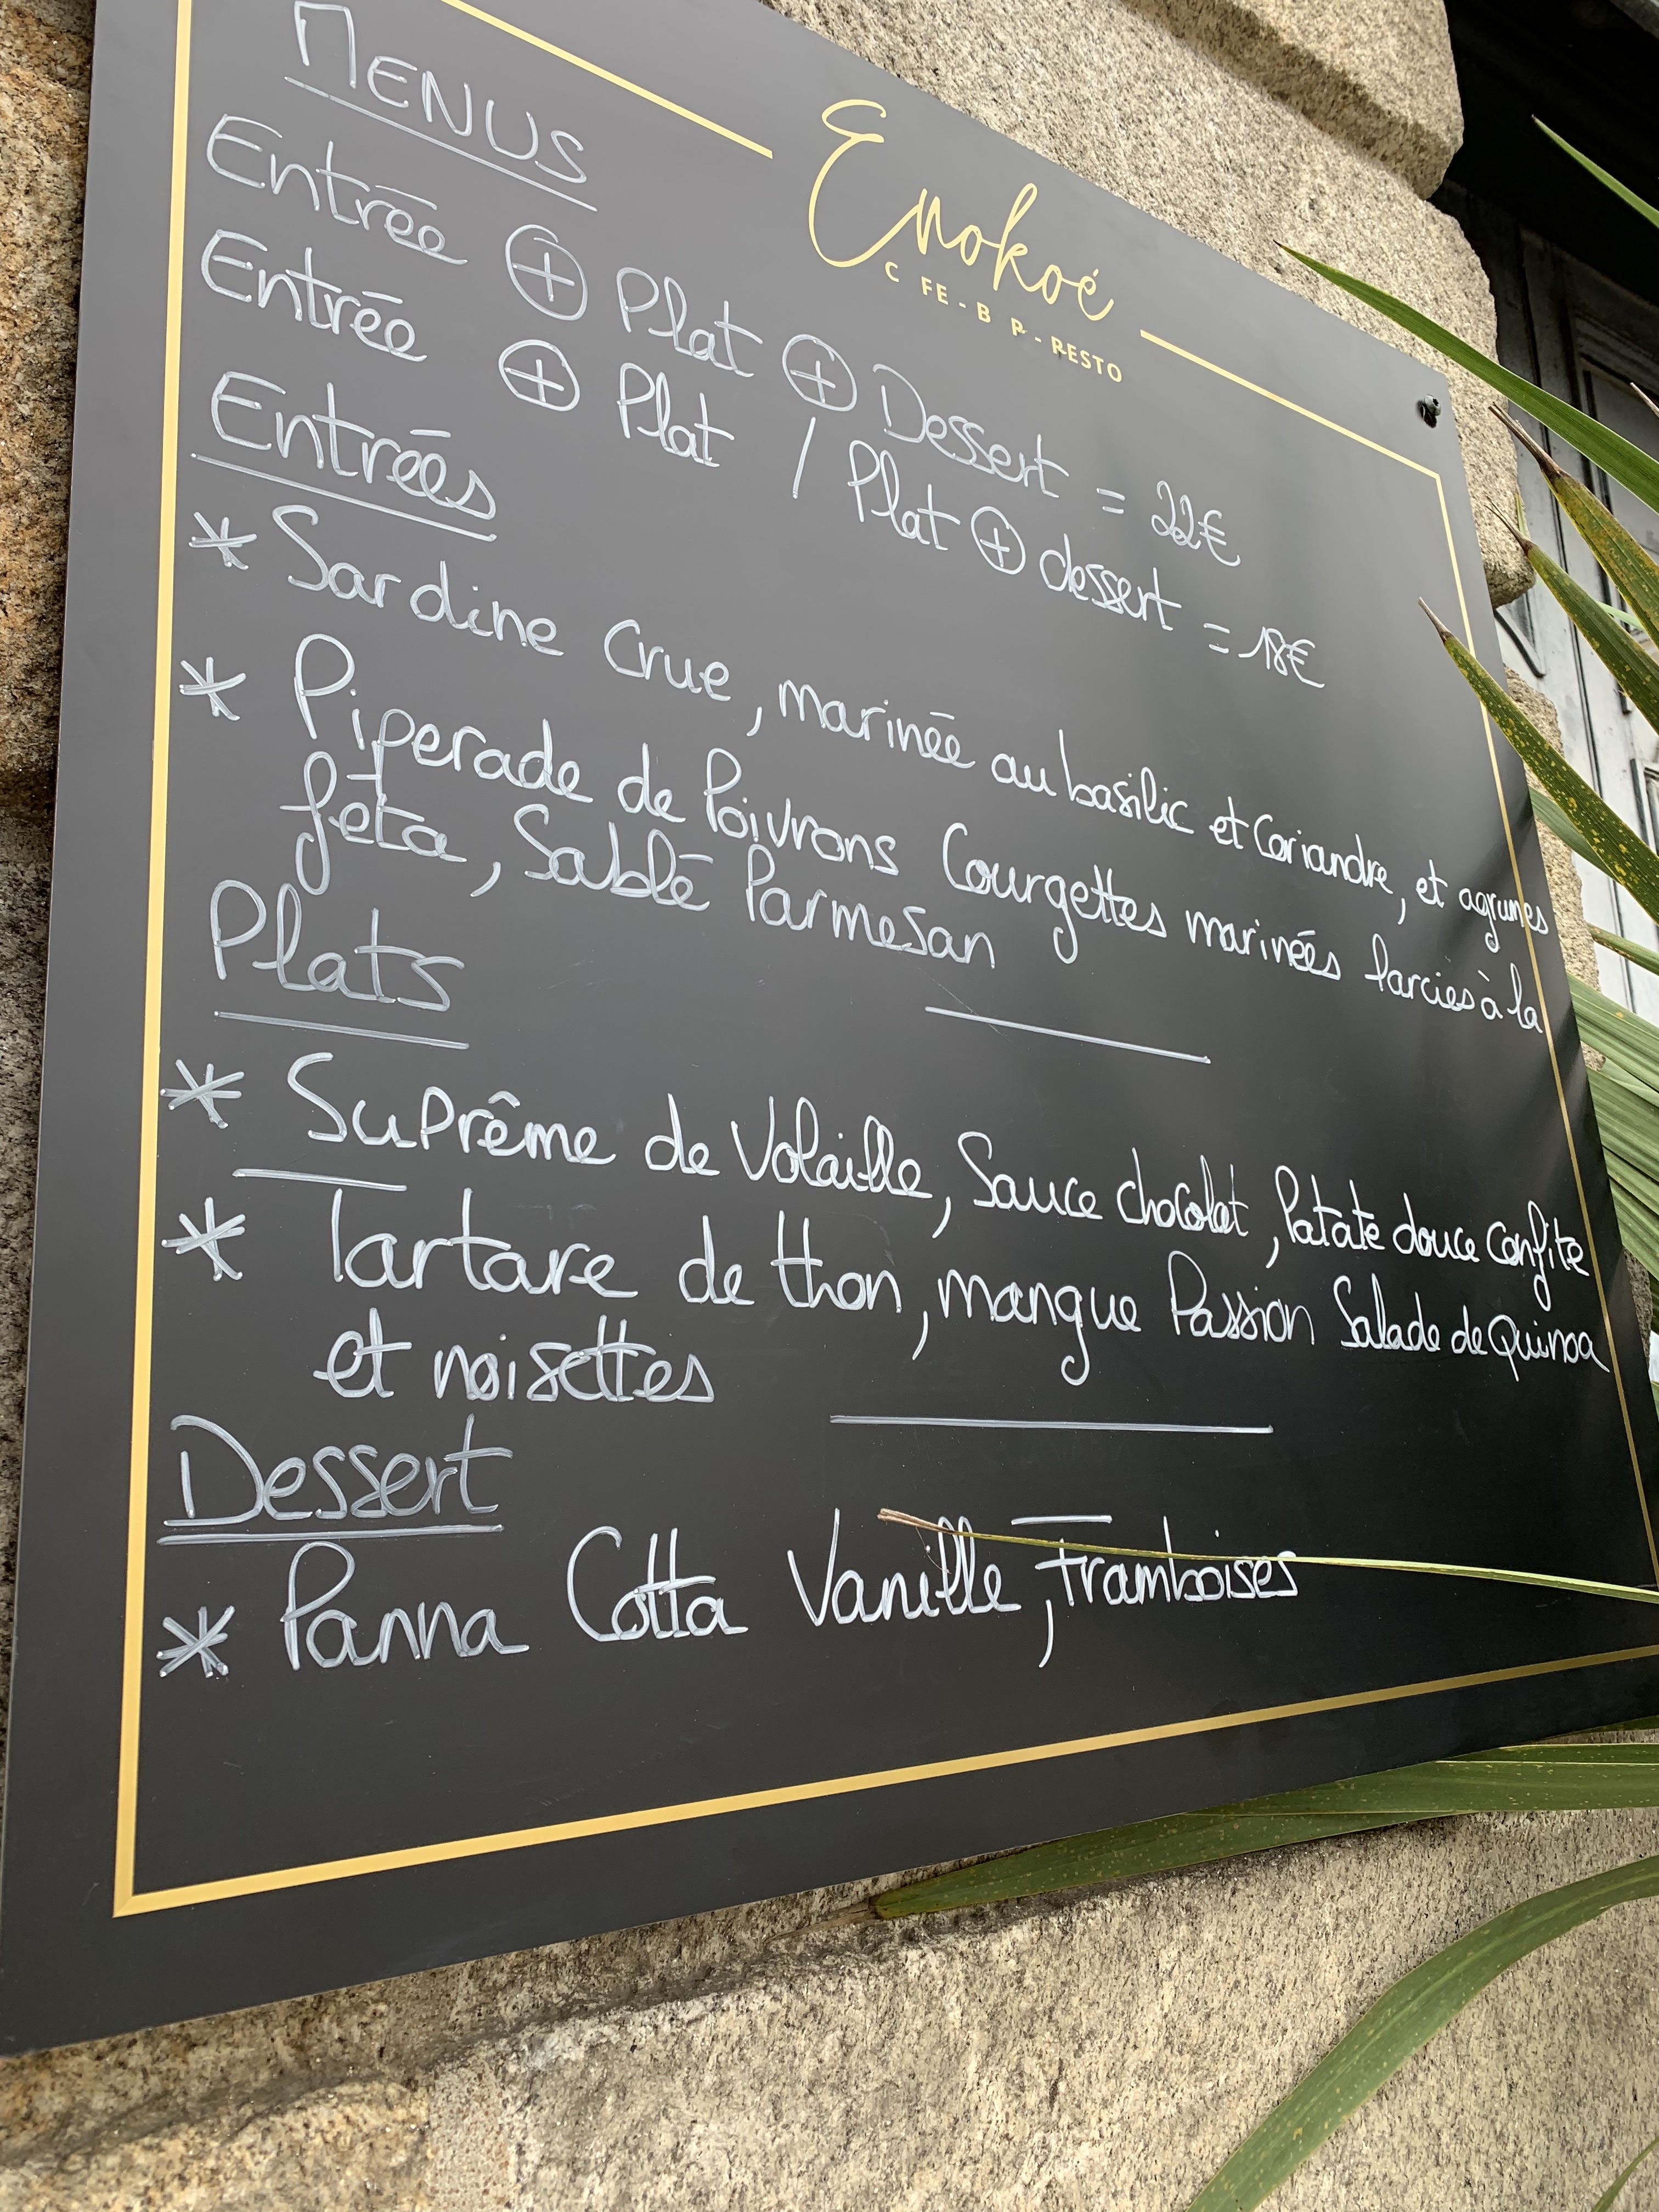 MENUS
Enokoé
C FE - B R - RESTO
Entrée + Plat + Dessert = 22€
Entrée + Plat / Plat + dessert = 18€
Entrées
* Sardine Crue, marinée au basilic et Coriandre, et agrumes
* Piperade de Poivrons Courgettes marinées farcies à la
féta, Sablé Parmesan
Plats
* Suprême de Volaille, Sauce chocolat, Patate douce confite
* Tartare de thon, mangue Passion Salade de Quinoa
et noisettes
Dessert
* Panna Cotta Vanille, Framboises